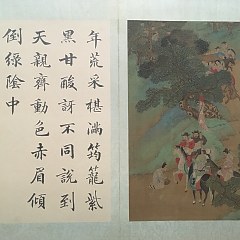 年荒采椹滿筠籠紫
黑甘酸訝不同說到
天親齊動色赤眉傾
倒綠陰中